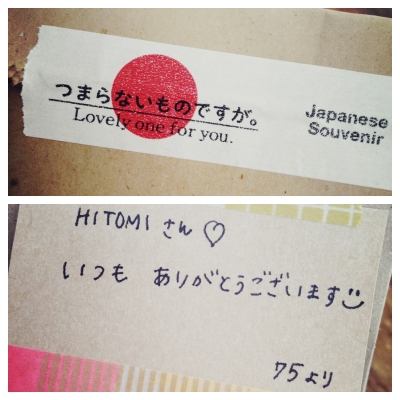 つまらないものですが。
Lovely one for you.
Japanese
Souvenir
HITOMI さん♡
いつも ありがとうございます
75より